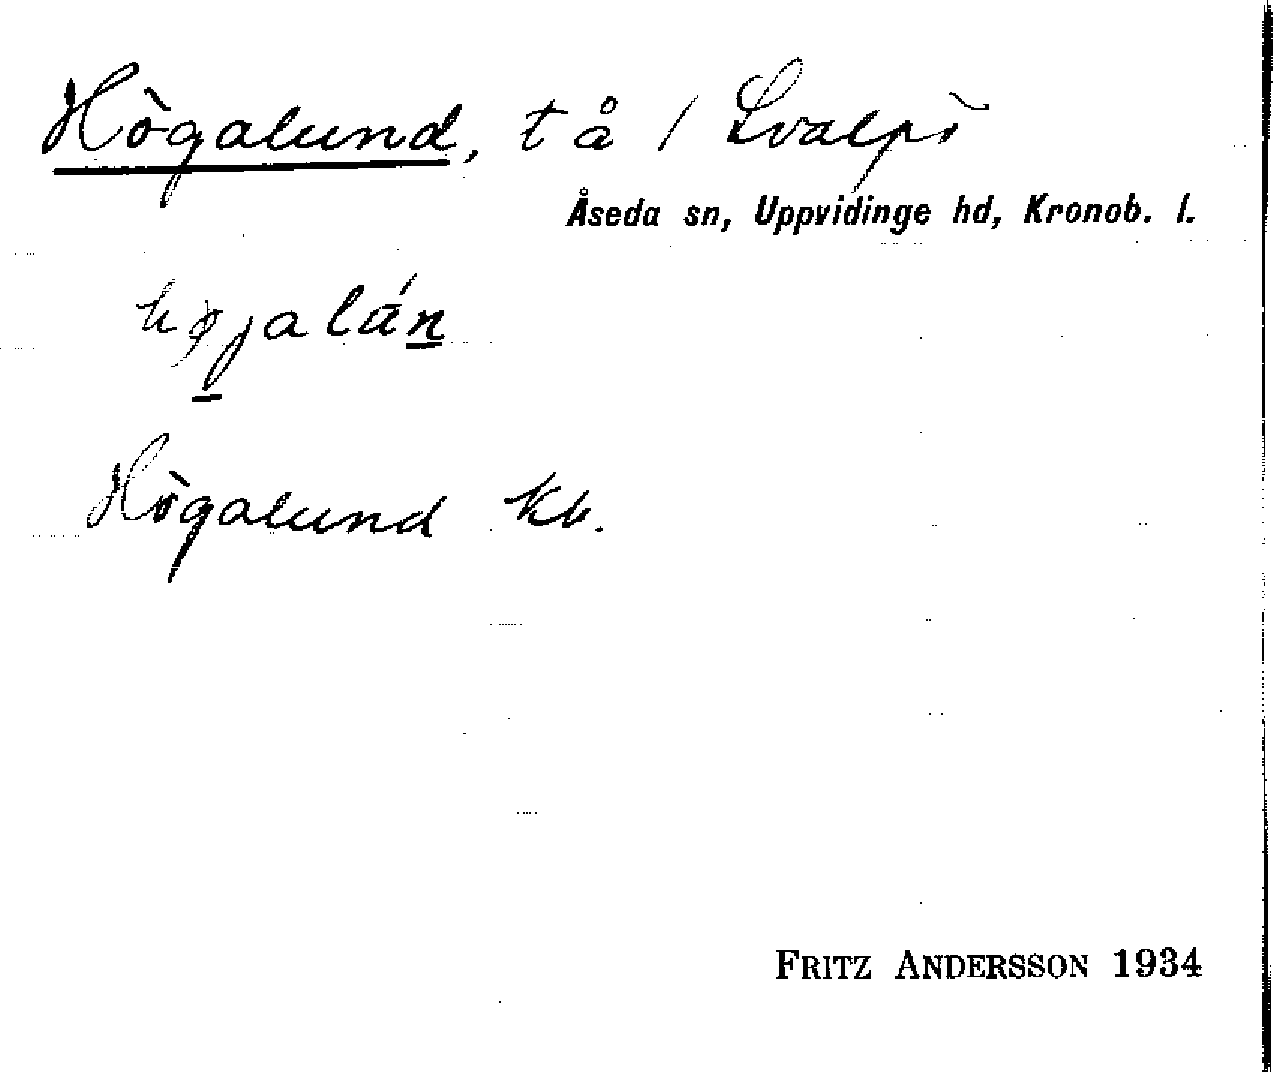 Högalund, tå / Svalpö
Åseda sn, Uppvidinge hd, Kronob. l.
højalán
Högalund kb.
FRITZ ANDERSSON 1934